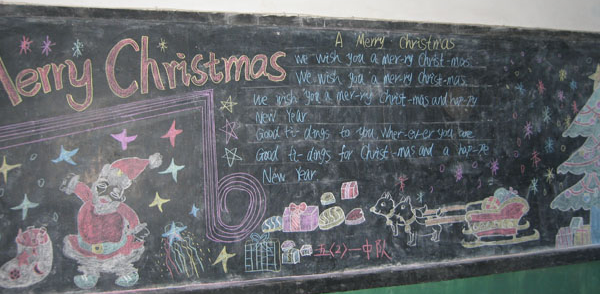 Merry Christmas
A Merry Christmas
We wish you a mer-ry Christ-mas
We wish you a mer-ry Christ-mas
We wish you a mer-ry Christ-mas and hap-py
New Year
Good ti-dings to you wher-ev-er you are
Good ti-dings for Christ-mas and a hap-py
New Year
五(2)一中队